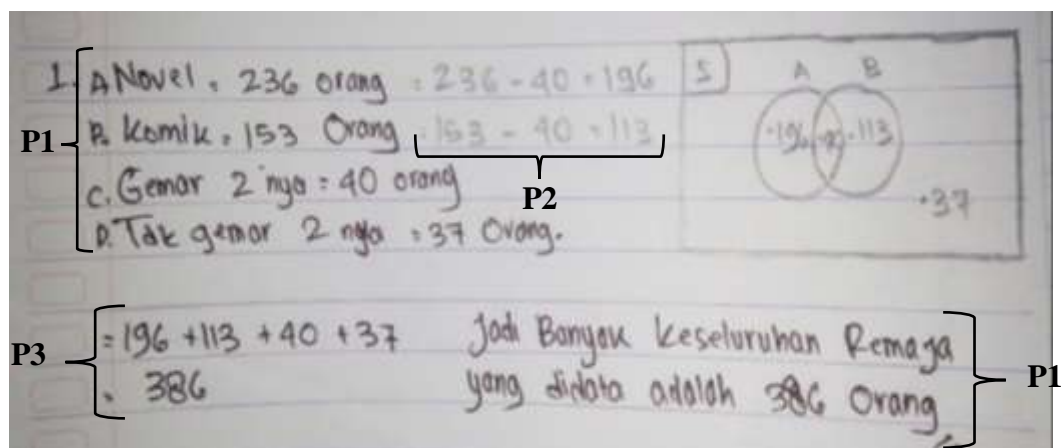 1. A Novel = 236 orang = 236 - 40 = 196
B. Komik = 153 Orang = 153 - 40 = 113
C. Gemar 2 nya = 40 orang
D. Tak gemar 2 nya = 37 Orang.
P1
P2
S
A B
.196 .113
.37
P3
= 196 + 113 + 40 + 37
= 386
Jadi Banyak Keseluruhan Remaja
yang didata adalah 386 Orang
P1